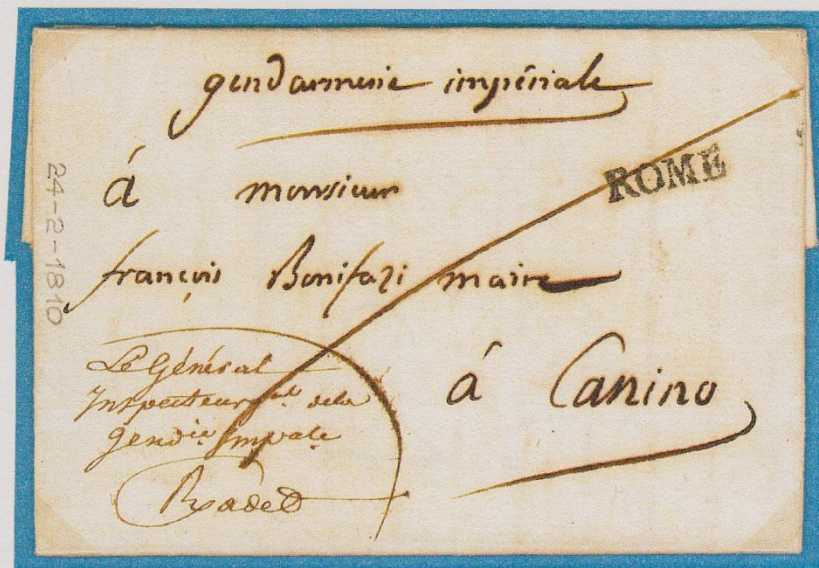 gendarmerie impériale
ROME
á monsieur
françois Bonifazi maire
á Canino
Le Général
Inspecteur gal. dela
Gendie Impale
Radet
24-2-1810